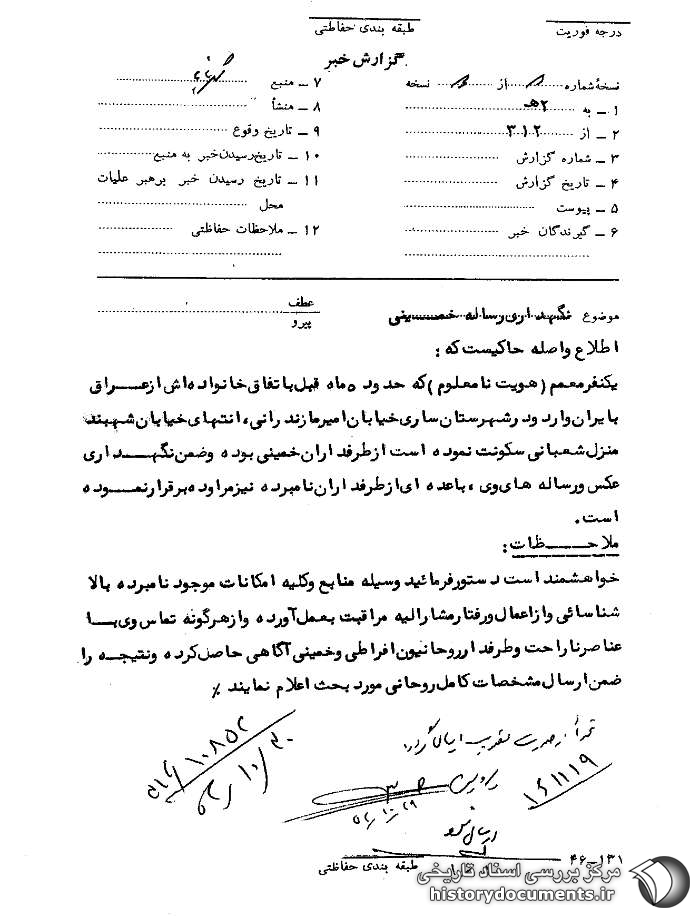 درجه فوریت
طبقه بندی حفاظتی
گزارش خبر
نسخهٔ شماره از نسخه
۱ ــ به ۲هـ
۲ ــ از ۳۱۲
۳ ــ شماره گزارش
۴ ــ تاریخ گزارش
۵ ــ پیوست
۶ ــ گیرندگان خبر
۷ ــ منبع
۸ ــ منشأ
۹ ــ تاریخ وقوع
۱۰ ــ تاریخ رسیدن خبر به منبع
۱۱ ــ تاریخ رسیدن خبر برهبر عملیات
محل
۱۲ ــ ملاحظات حفاظتی
عطف
پیرو
موضوع نگهداری رساله خمینی
اطلاع واصله حاکیست که :
یکنفر معمم (هویت نامعلوم) که حدود ۵ ماه قبل با تفاق خانواده اش از عراق
بایران وارد و در شهرستان ساری خیابان امیرمازندرانی، انتهای خیابان شهبند
منزل شعبانی سکونت نموده است از طرفداران خمینی بوده و ضمن نگهداری
عکس و رساله های وی، با عده ای از طرفداران نامبرده نیز مراوده برقرار نموده
است.
ملاحظات:
خواهشمند است دستور فرمائید وسیله منابع و کلیه امکانات موجود نامبرده بالا
شناسائی و از اعمال و رفتار مشارالیه مراقبت بعمل آورده و از هرگونه تماس وی با
عناصر ناراحت و طرفدار روحانیون افراطی و خمینی آگاهی حاصل کرده و نتیجه را
ضمن ارسال مشخصات کامل روحانی مورد بحث اعلام نمایند ٪
۱۶۱۱۱۹
۴۶ــ۱۳۱
طبقه بندی حفاظتی
مرکز بررسی اسناد تاریخی
historydocuments.ir